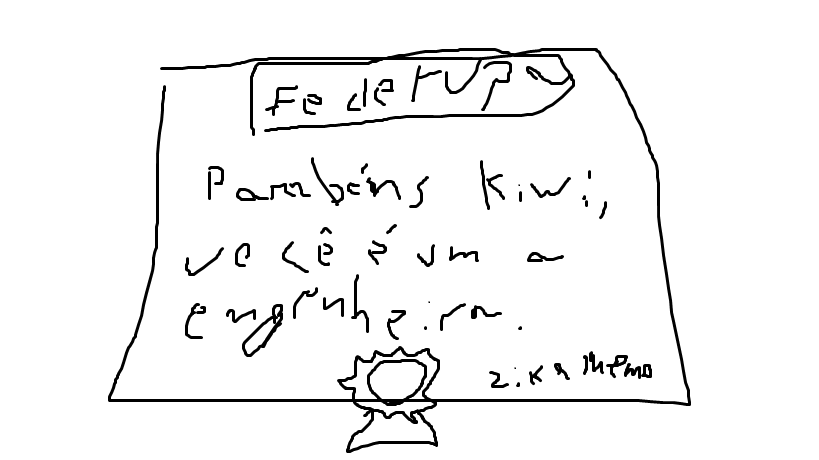 Parabéns Kiwi,
você é um a
engenheira.
zika memo